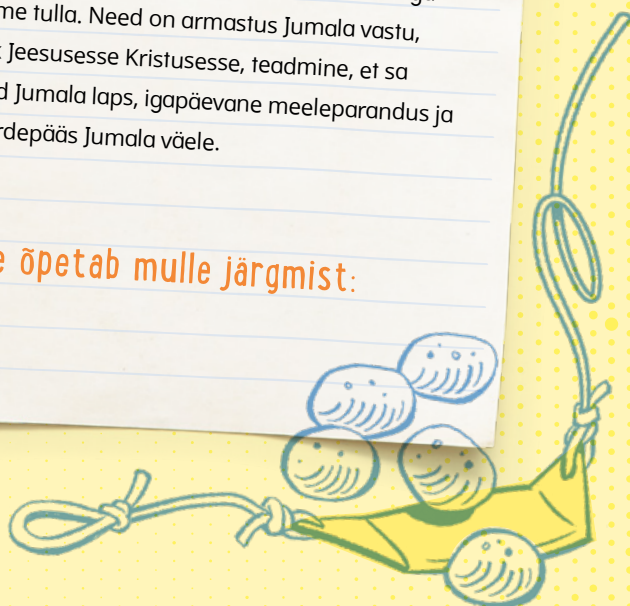 me tulla. Need on armastus Jumala vastu,
Jeesusesse Kristusesse, teadmine, et sa
Jumala laps, igapäevane meeleparandus ja
rdepääs Jumala väele.
õpetab mulle järgmist: